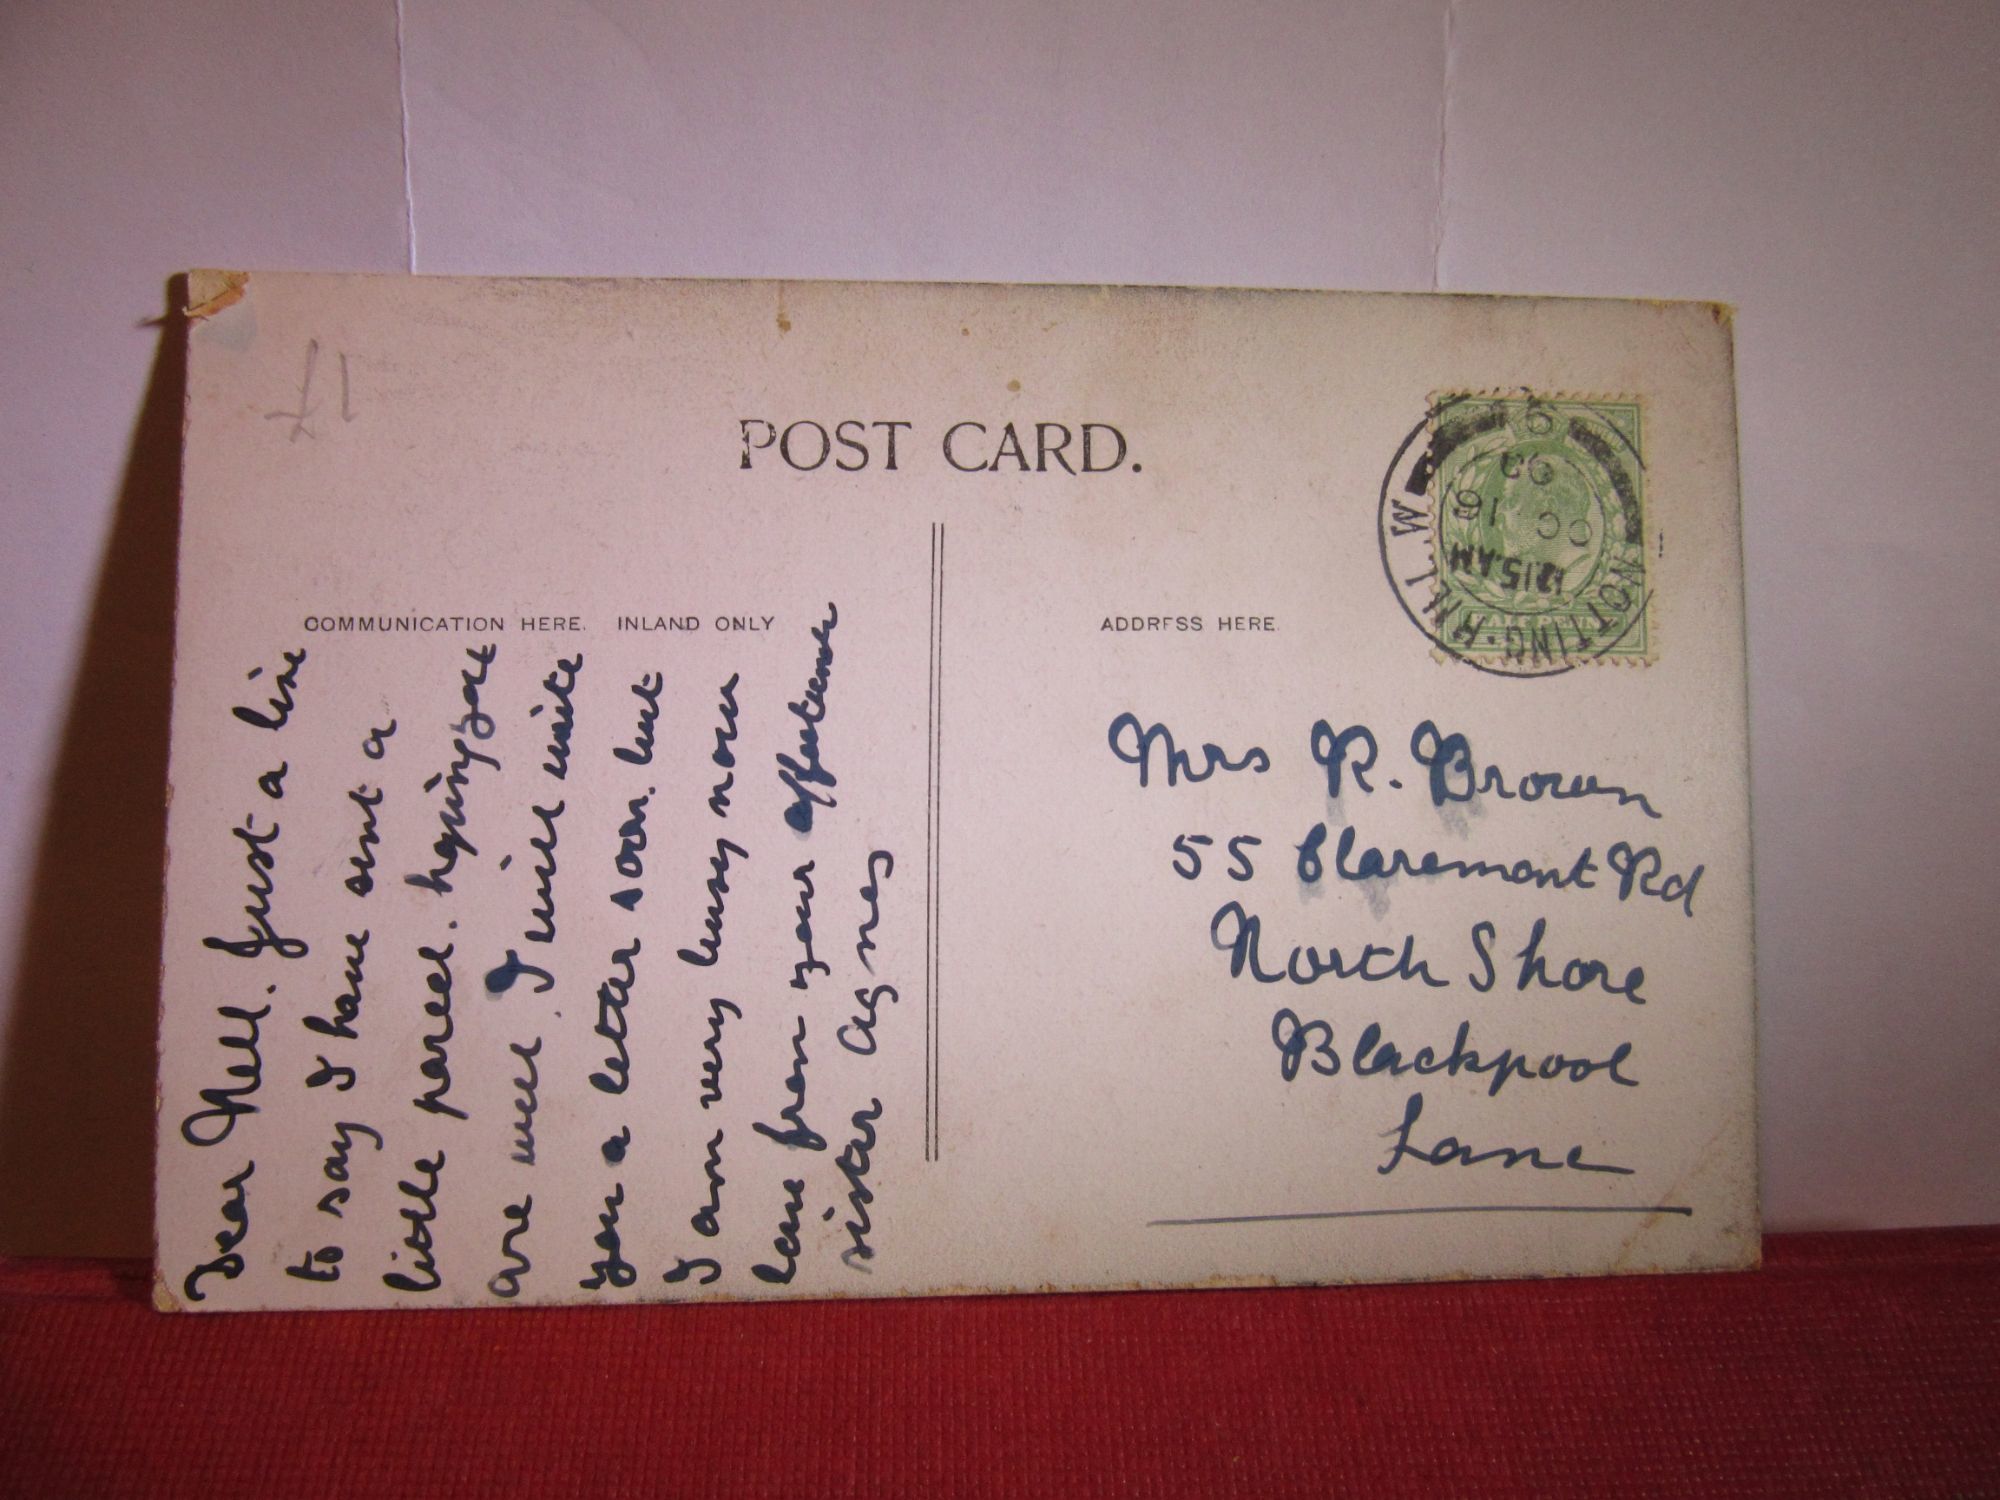 £1
POST CARD.
COMMUNICATION HERE. INLAND ONLY
ADDRESS HERE.
Dear Nell. Just a line
to say I have sent a
little parcel. hoping you
are well. I will write
you a letter soon. but
I am very busy now
love from your affectionate
sister Agnes
NOTTING-HILL.W
12.15.AM
OC 16
09
9
HALFPENNY
Mrs R. Brown
55 Claremont Rd
North Shore
Blackpool
Lanc